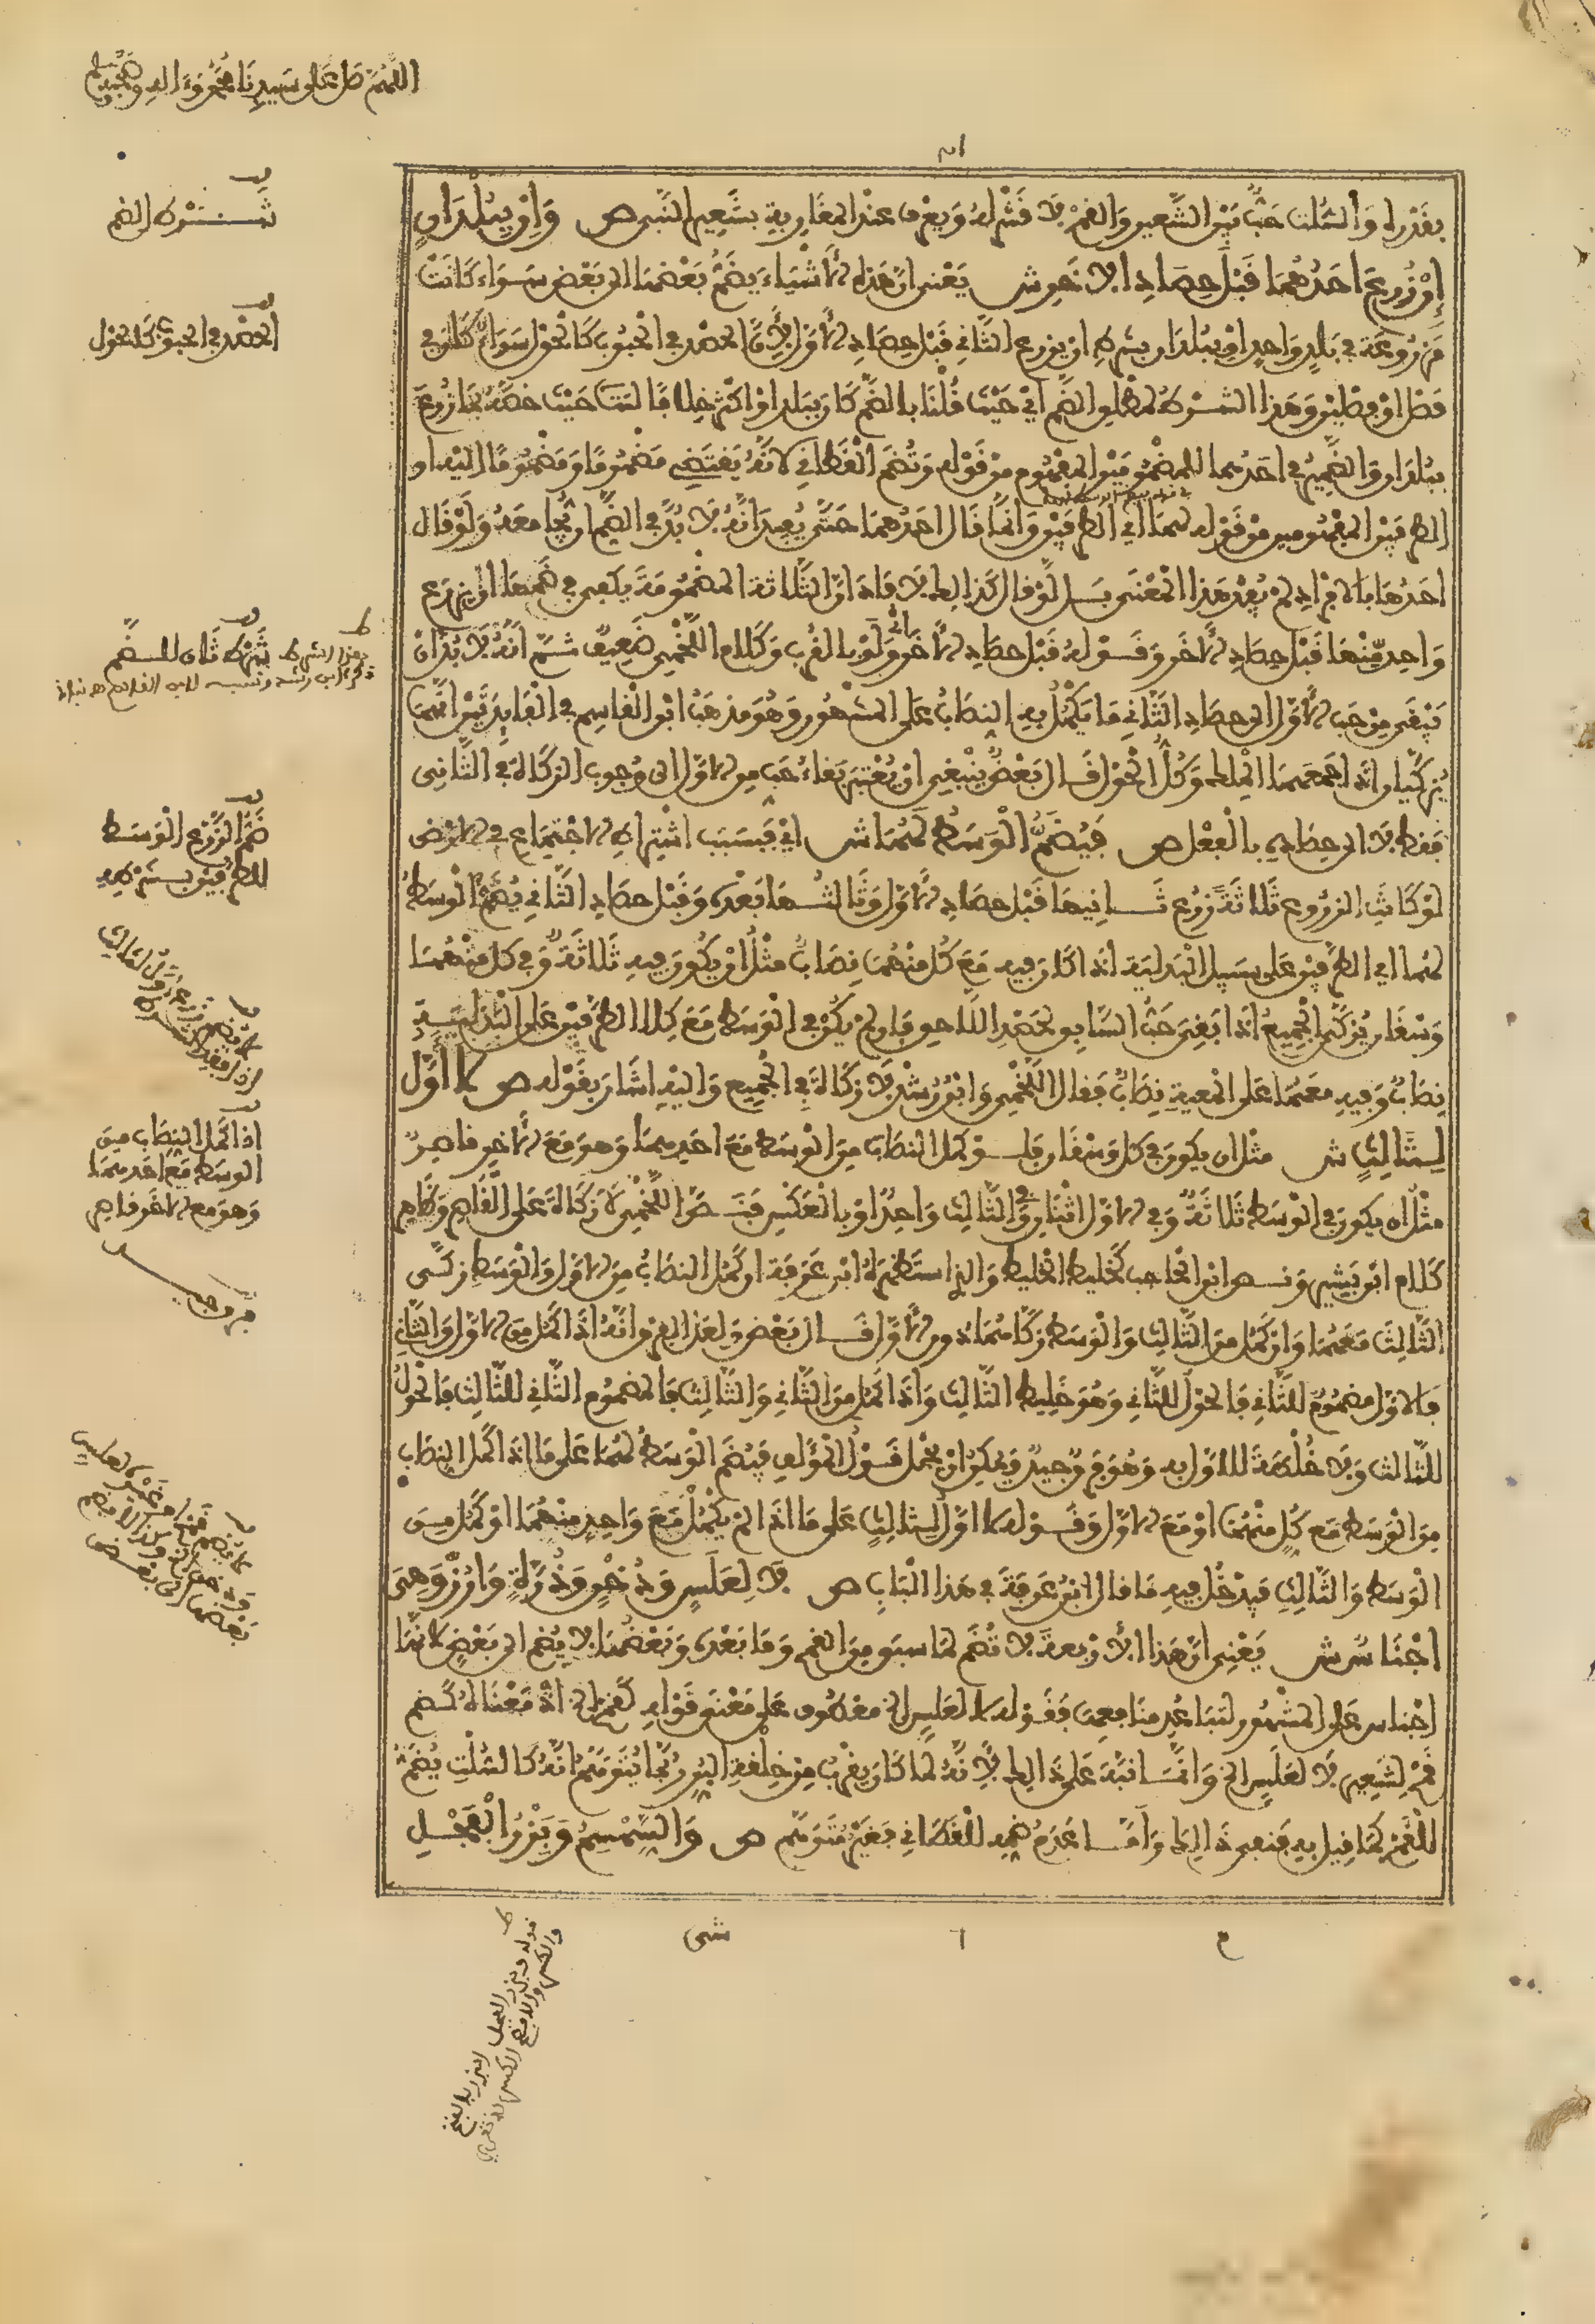 اللهم صل على سيدنا محمد وءاله وصحبه وسلم
بقدره والسلت حب بين الشعير والقمح لا قشر له ويعرف عند المغاربة بشعير النبي ص وإن ببلدان
إن زرع أحدهما قبل حصاد الاخر ش يعني أن هذه الأشياء يضم بعضها الى بعض سواء كانت
مزروعة في بلد واحد او ببلدان بشرط ان يزرع الثاني قبل حصاد الأول لأن الحصد في الحبوب كالحول سواء كان في
فصل او فصلين وهذا الشرط لمطلق الضم اي حيث قلنا بالضم كان ببلد او اكثر خلافا لتت حيث خصه بما زرع
ببلدان والضمير في احدهما للمضمومين المفهوم من قوله وتضم القطاني لانه يقتضي مضموما ومضموما اليه او
الطرفين المفهومين من قوله لهما اي الطرفين وانما قال احدهما حتى يفيد انه لا بد في الضم ان يجامعه ولو قال
احدها بالافراد لم يفد هذا المعنى بل لو قال كذلك لافاد ان الثلاثة المضمومة يكفي في ضمها ان يزرع
واحد منها قبل حصاد الأخر وقوله قبل حصاد الأخر ولو بالقرب وكلام اللخمي ضعيف ثم انه لا بد ان
يبقى من حب الأول الى حصاد الثاني ما يكمل به النصاب على المشهور وهو مذهب ابن القاسم في الفايدتين انهما
يزكيان اذا جمعهما الملك وكل الحول قال بعض ينبغي ان يعتبر بقاء حب من الاول الى وجوب الزكاة في الثاني
فقط لا الى حصاده بالفعل ص فيضم الوسط لهما ش اي فبسبب اشتراط الاجتماع في الارض
لو كانت الزروع ثلاثة زرع ثانيها قبل حصاد الأول وثالثها بعده وقبل حصاد الثاني يضم الوسط
لهما اي الطرفين على سبيل البدلية اذا كان فيه مع كل منهما نصاب مثل ان يكون فيه ثلاثة وفي كل منهما
وسقان يزكى الجميع اذا بقي حب السابق لحصد اللاحق فان لم يكن في الوسط مع كل الطرفين على البدلية
نصاب وفيه معهما على المعية نصاب فقال اللخمي وابن رشد لا زكاة في الجميع واليه اشار بقوله ص لا أول
لثالث ش مثل ان يكون في كل وسقان فلو كمل النصاب من الوسط مع احدهما وهو مع الأخر قاصر
مثل ان يكون في الوسط ثلاثة وفي الاول اثنان وفي الثالث واحدا او بالعكس فنص اللخمي لا زكاة على القاصر وظاهر
كلام ابن بشير ونص ابن الحاجب كخليط الخليط والذي استظهره ابن عرفة ان كمل النصاب من الاول والوسط زكى
الثالث معهما وان كمل من الثالث والوسط زكاهما دون الأول قال بعض ولعل الفرق انه اذا كمل من الاول والثاني
فالاول مضموم للثاني فالحول للثاني وهو خليط الثالث واذا كمل من الثاني والثالث فالمضموم الثاني للثالث فالحول
للثالث ولا خلطة للاول به وهو فرق وجيه ويمكن ان يحمل قول المؤلف فيضم الوسط لهما على ما اذا كمل النصاب
من الوسط مع كل منهما او مع الاول وقوله لا اول لثالث على ما اذا لم يكمل مع واحد منهما او كمل من
الوسط والثالث فيدخل فيه ما قال ابن عرفة في هذا الباب ص لا لعلس ودخن وذرة وارز وهي
اجناس ش يعني ان هذه الأربعة لا تضم لما سبق من القمح وما بعده وبعضها لا يضم الى بعض لانها
اجناس على المشهور لتباعد منافعها فقوله لا لعلس الخ معطوف على معنى قوله كقمح الخ اذ معناه كضم
قمح لشعير لا لعلس الخ وانما نبه على ذلك لأنه لما كان يقرب من خلقة البر ربما يتوهم انه كالسلت يضم
للقمح كما قيل به فنفى ذلك واما عدم ضمه للقطاني فغير متوهم ص والسمسم وبزر الفجل
شرط الضم
الحصد في الحبوب كالحول
شرط ثان للضم
ضم الزرع الوسط
للطرفين بشرطه
اذا كمل النصاب من
الوسط مع احدهما
وهو مع الاخر قاصر
فرق وجيه